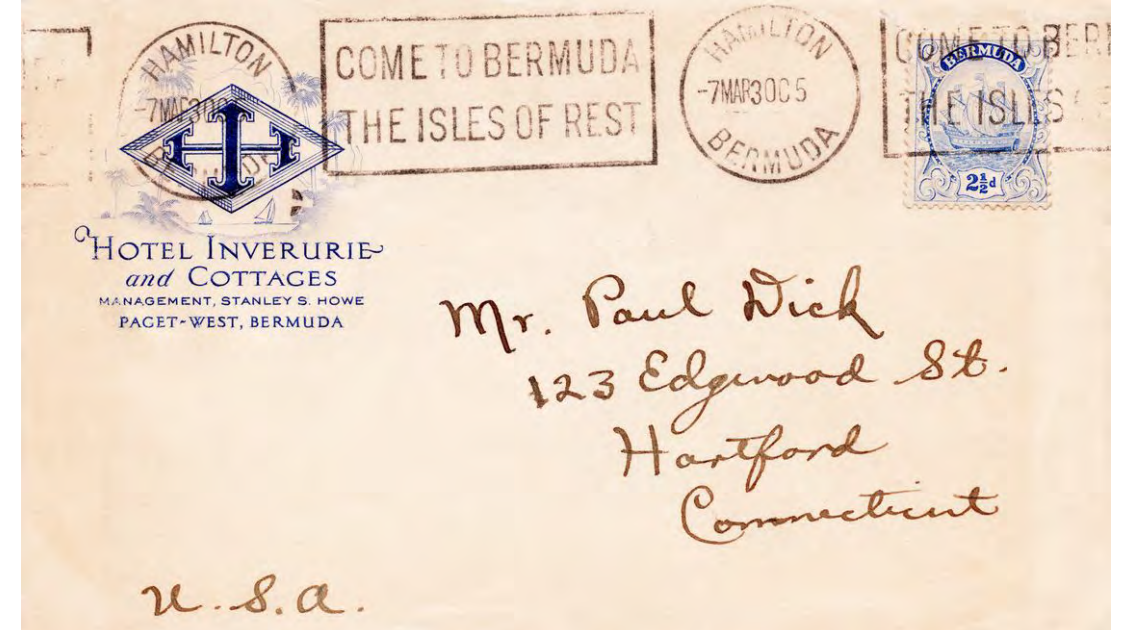 HAMILTON
BERMUDA
COME TO BERMUDA
THE ISLES OF REST
HAMILTON
-7MAR30C5
BERMUDA
COME TO BER
THE ISLES
BERMUDA
2½d
HOTEL INVERURIE
and COTTAGES
MANAGEMENT, STANLEY S. HOWE
PAGET-WEST, BERMUDA
Mr. Paul Dick
123 Edgewood St.
Hartford
Connecticut
U.S.A.